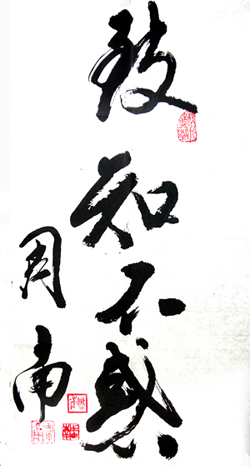 致知不惑
周南